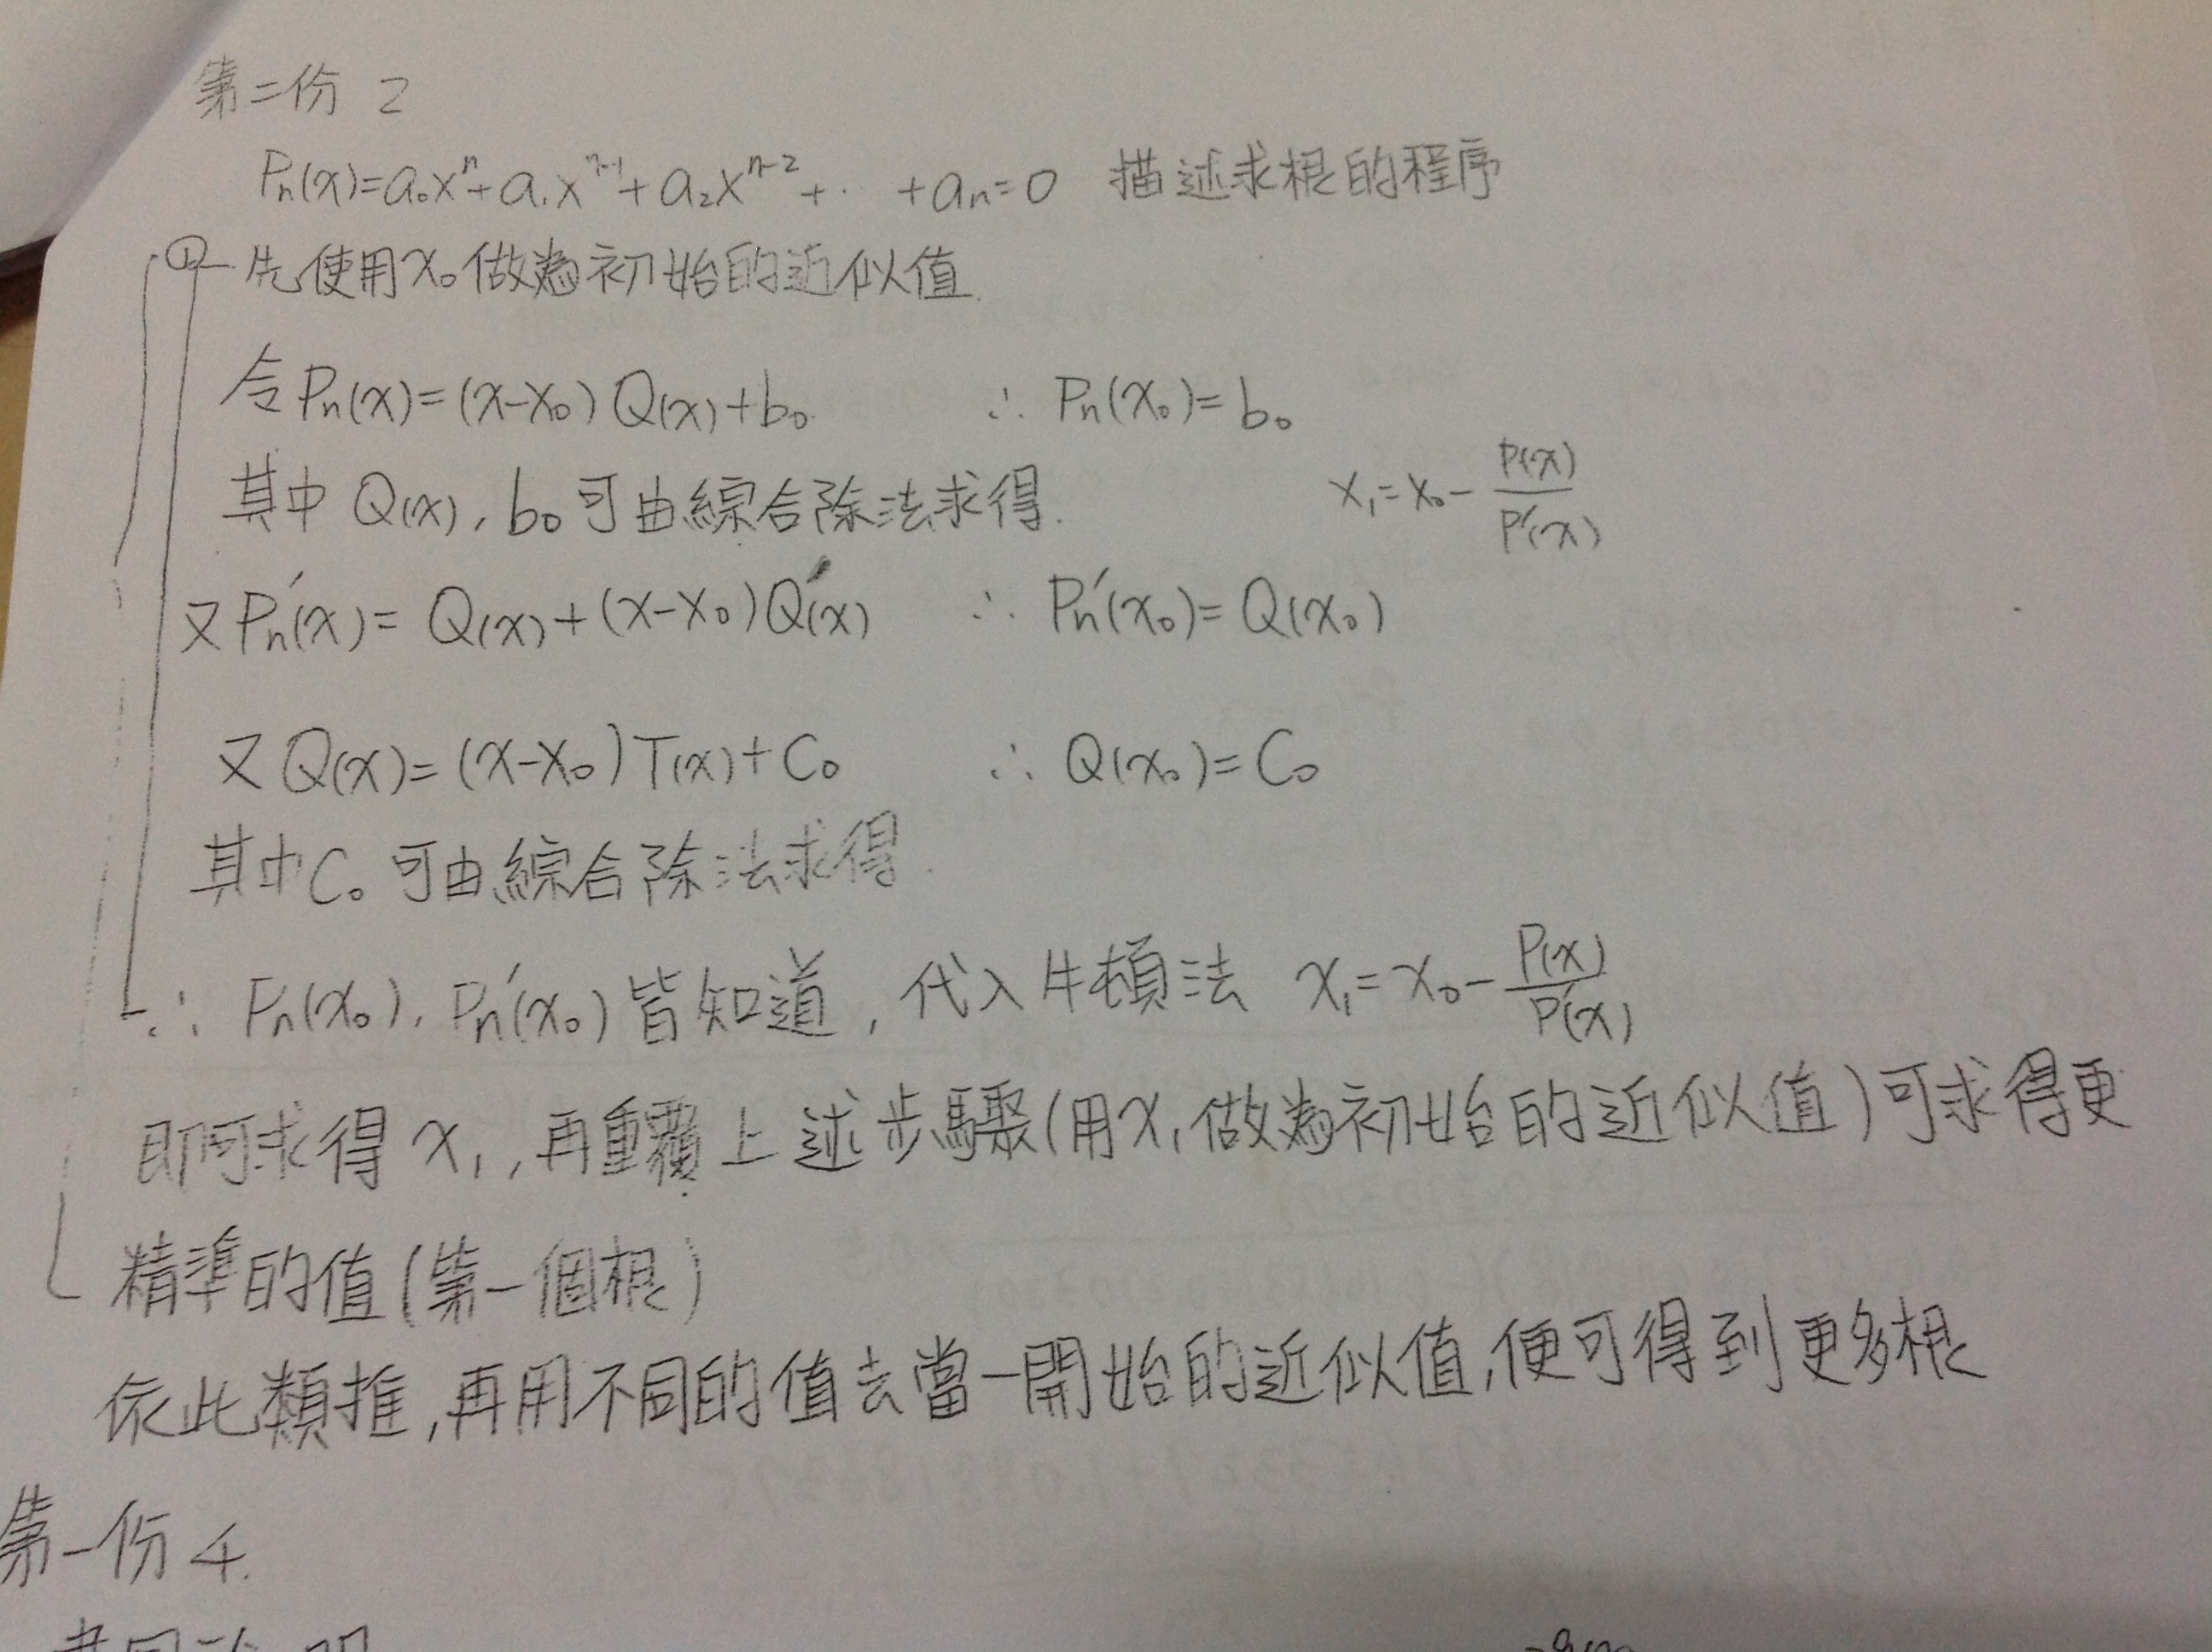 第二份 2
Pn(x)=a₀xⁿ+a₁xⁿ⁻¹+a₂xⁿ⁻²+‥ +an=0 描述求根的程序
① 先使用x₀做為初始的近似值.
令Pn(x)=(x-x₀)Q(x)+b₀ ∴ Pn(x₀)=b₀
其中 Q(x), b₀可由綜合除法求得. x₁=x₀-P(x)/P'(x)
又Pn'(x)=Q(x)+(x-x₀)Q'(x) ∴ Pn'(x₀)=Q(x₀)
又Q(x)=(x-x₀)T(x)+C₀ ∴ Q(x₀)=C₀
其中C₀可由綜合除法求得.
∴ Pn(x₀), Pn'(x₀)皆知道, 代入牛頓法 x₁=x₀-P(x)/P'(x)
即可求得 x₁, 再重覆上述步驟(用x₁做為初始的近似值)可求得更
精準的值(第一個根)
依此類推,再用不同的值去當一開始的近似值,便可得到更多根
第一份 4.